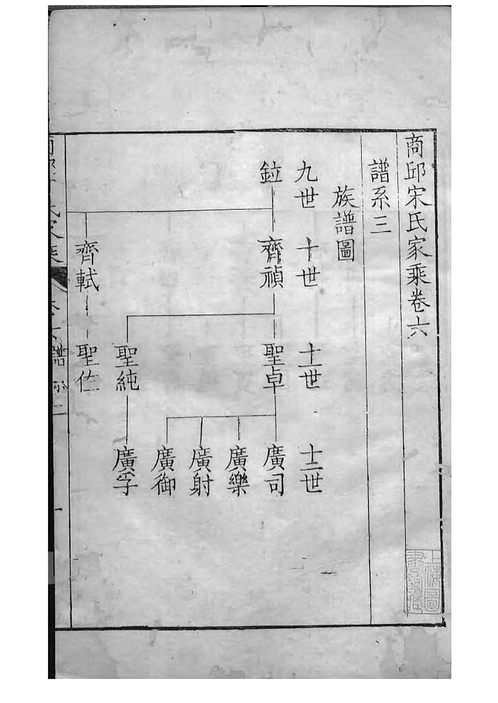 商邱宋氏家乘卷六
譜系三
族譜圖
九世 十世 十一世 十二世
鉝 齊禎 聖卓 廣司
廣樂
廣射
廣御
聖純 廣孚
齊軾 聖佐